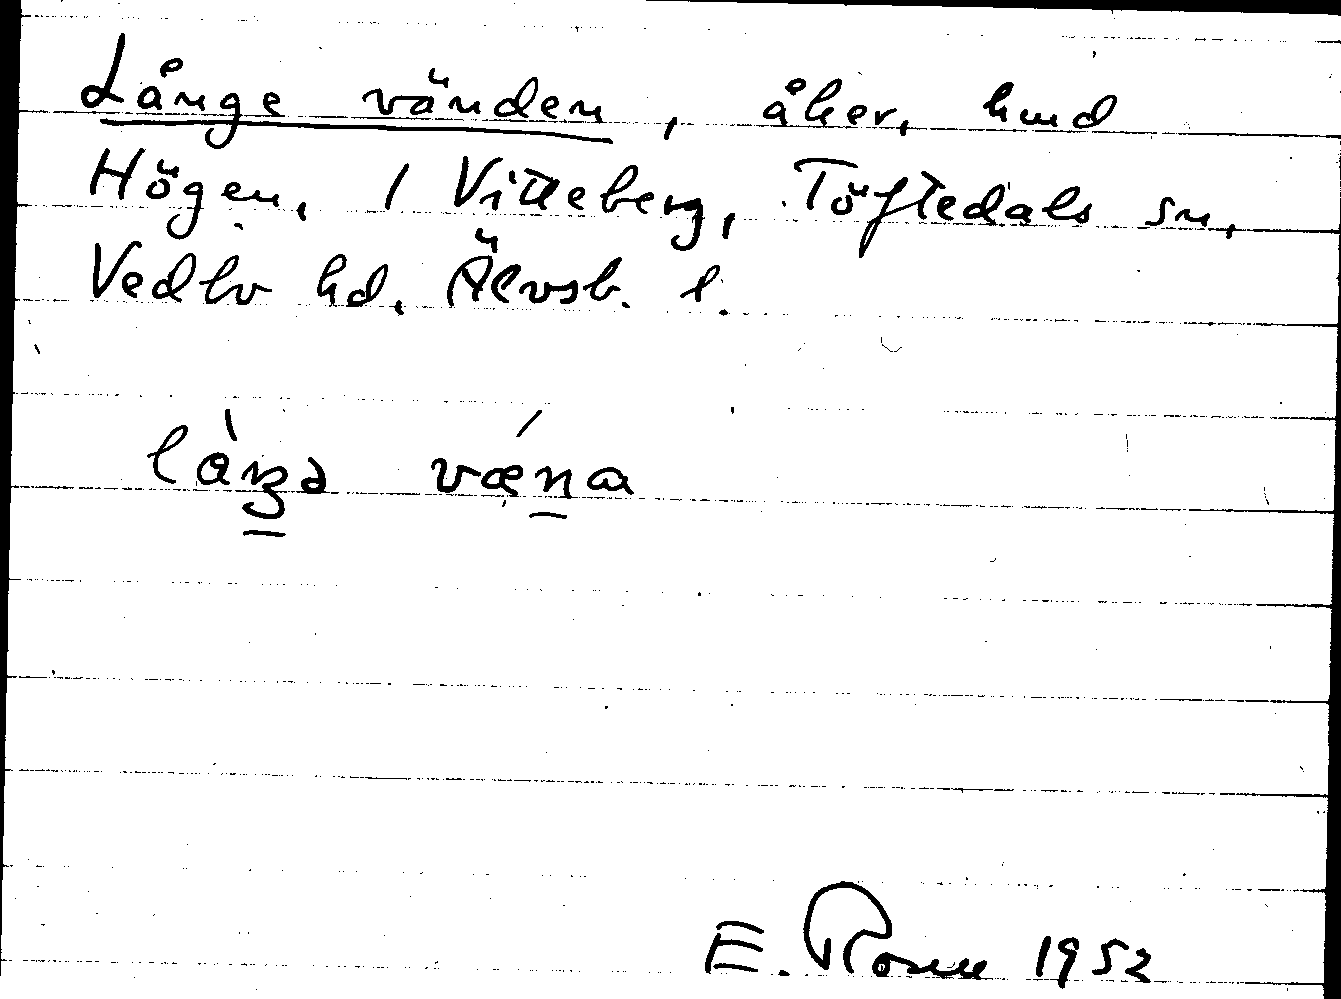 Långe vänden, åker, hmd
Högen, 1 Vitteberg, Töftedals sn,
Vedbo hd, Älvsb. l.
làŋə vǽna
E. 1952